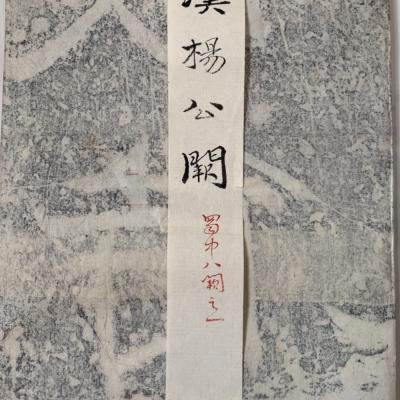 漢楊公闕
蜀中八闕之一